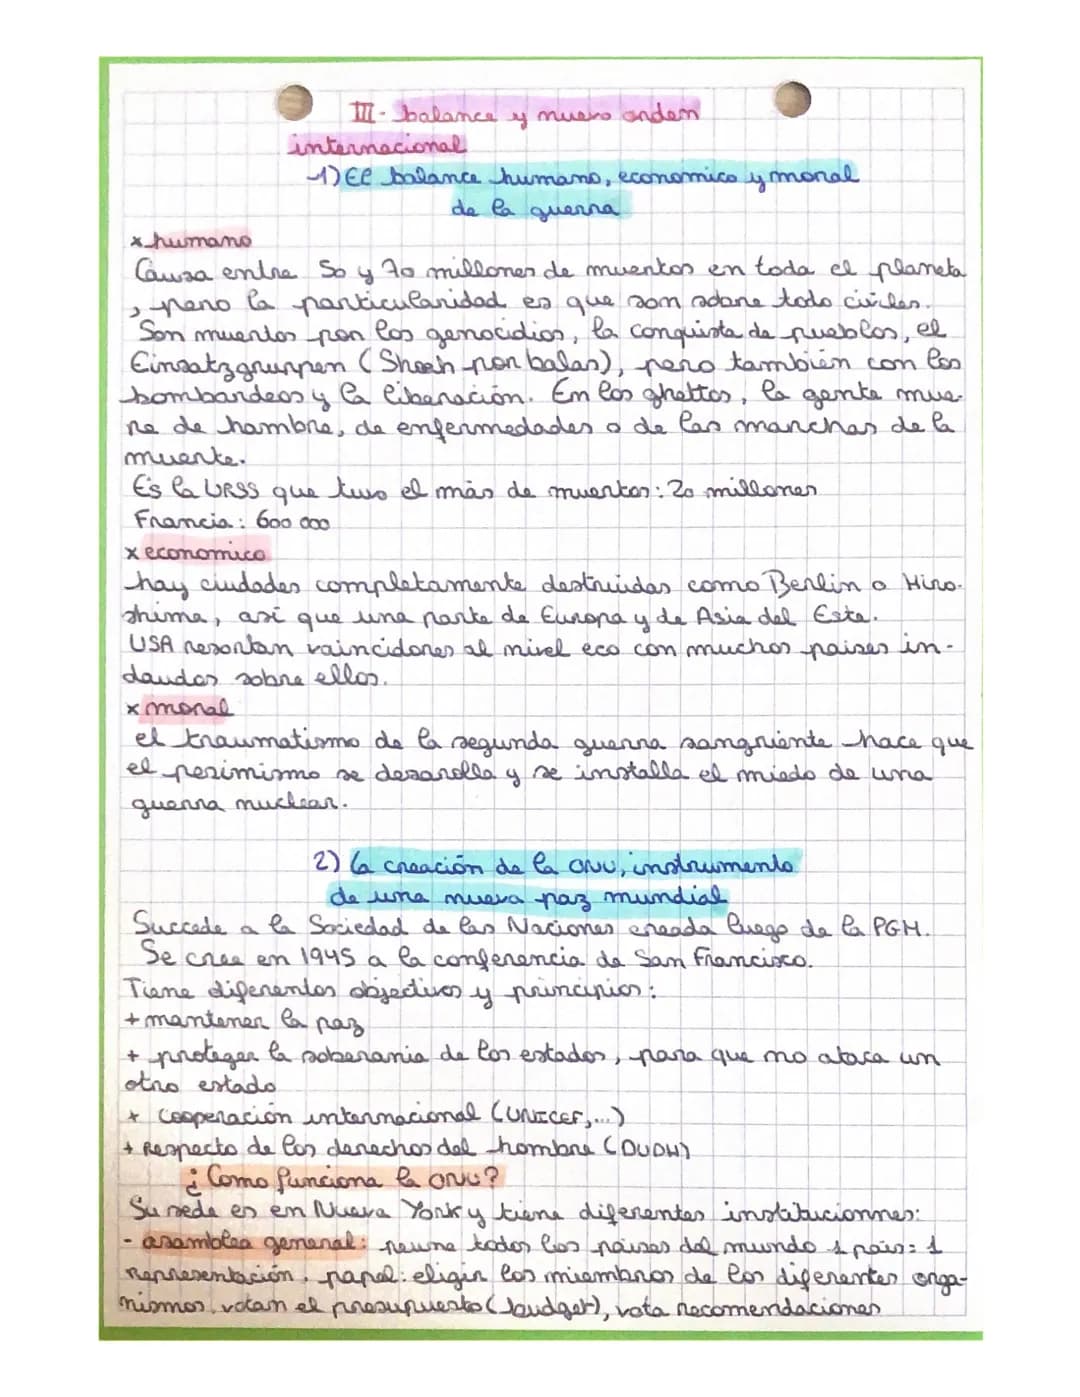 III- balance y nuevo orden
internacional
1) El balance humano, economico y moral
de la guerra
x humano
Causa entre 50 y 70 millones de muertos en toda el planeta
, pero la particularidad es que son sobre todo civiles.
Son muertos por los genocidios, la conquista de pueblos, el
Einsatzgruppen (Shoah por balas), pero también con los
bombardeos y la liberación. En los ghettos, la gente mue-
re de hambre, de enfermedades o de las manchas de la
muerte.
Es la URSS que tuvo el más de muertos: 20 millones
Francia: 600 000
x economico
hay ciudades completamente destruidas como Berlin o Hiro-
shima, asi que una parte de Europa y de Asia del Este.
USA resortan vaincidores al nivel eco con muchos paises in-
daudos sobre ellos.
x moral
el traumatismo de la segunda guerra sangriente hace que
el pesimismo se desarolla y se installa el miedo de una
guerra nuclear.
2) la creación de la ONU, instrumento
de una nueva paz mundial
Succede a la Sociedad de las Naciones creada luego de la PGM.
Se cree en 1945 a la conferencia de San Francisco.
Tiene diferentes objectivos y principios:
+ mantener la paz
+ proteger la soberania de los estados, para que no ataca un
otro estado
+ Cooperación internacional (UNICEF,...)
+ Respecto de los derechos del hombre (DUDH)
¿Como funciona la ONU?
Su sede es en Nueva York y tiene diferentes institucionnes:
- asamblea general: reune todos los paises del mundo 1 pais = 1
representación. papel: eligir los miembros de los diferentes orga-
nismos, votan el presupuesto (budget), vota recomendaciones